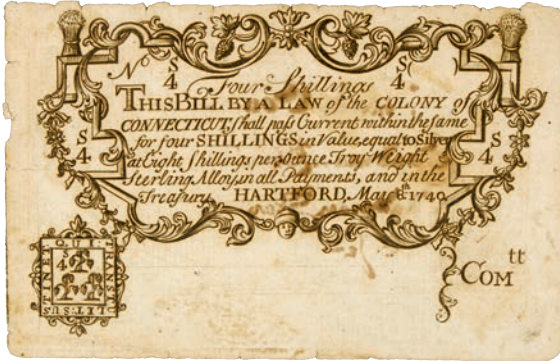 No S/4 S/4
Four Shillings
THIS BILL BY A LAW of the COLONY of
CONNECTICUT, shall pass Current within the same
for four SHILLINGS in Value, equal to Silver
S/4 at Eight Shillings per Ounce, Troy Weight S/4
Sterling Alloy, in all Payments, and in the
Treasury. HARTFORD, May 8th 1740
QUI TRANSTULIT SUSTINET
S/4
COMtt